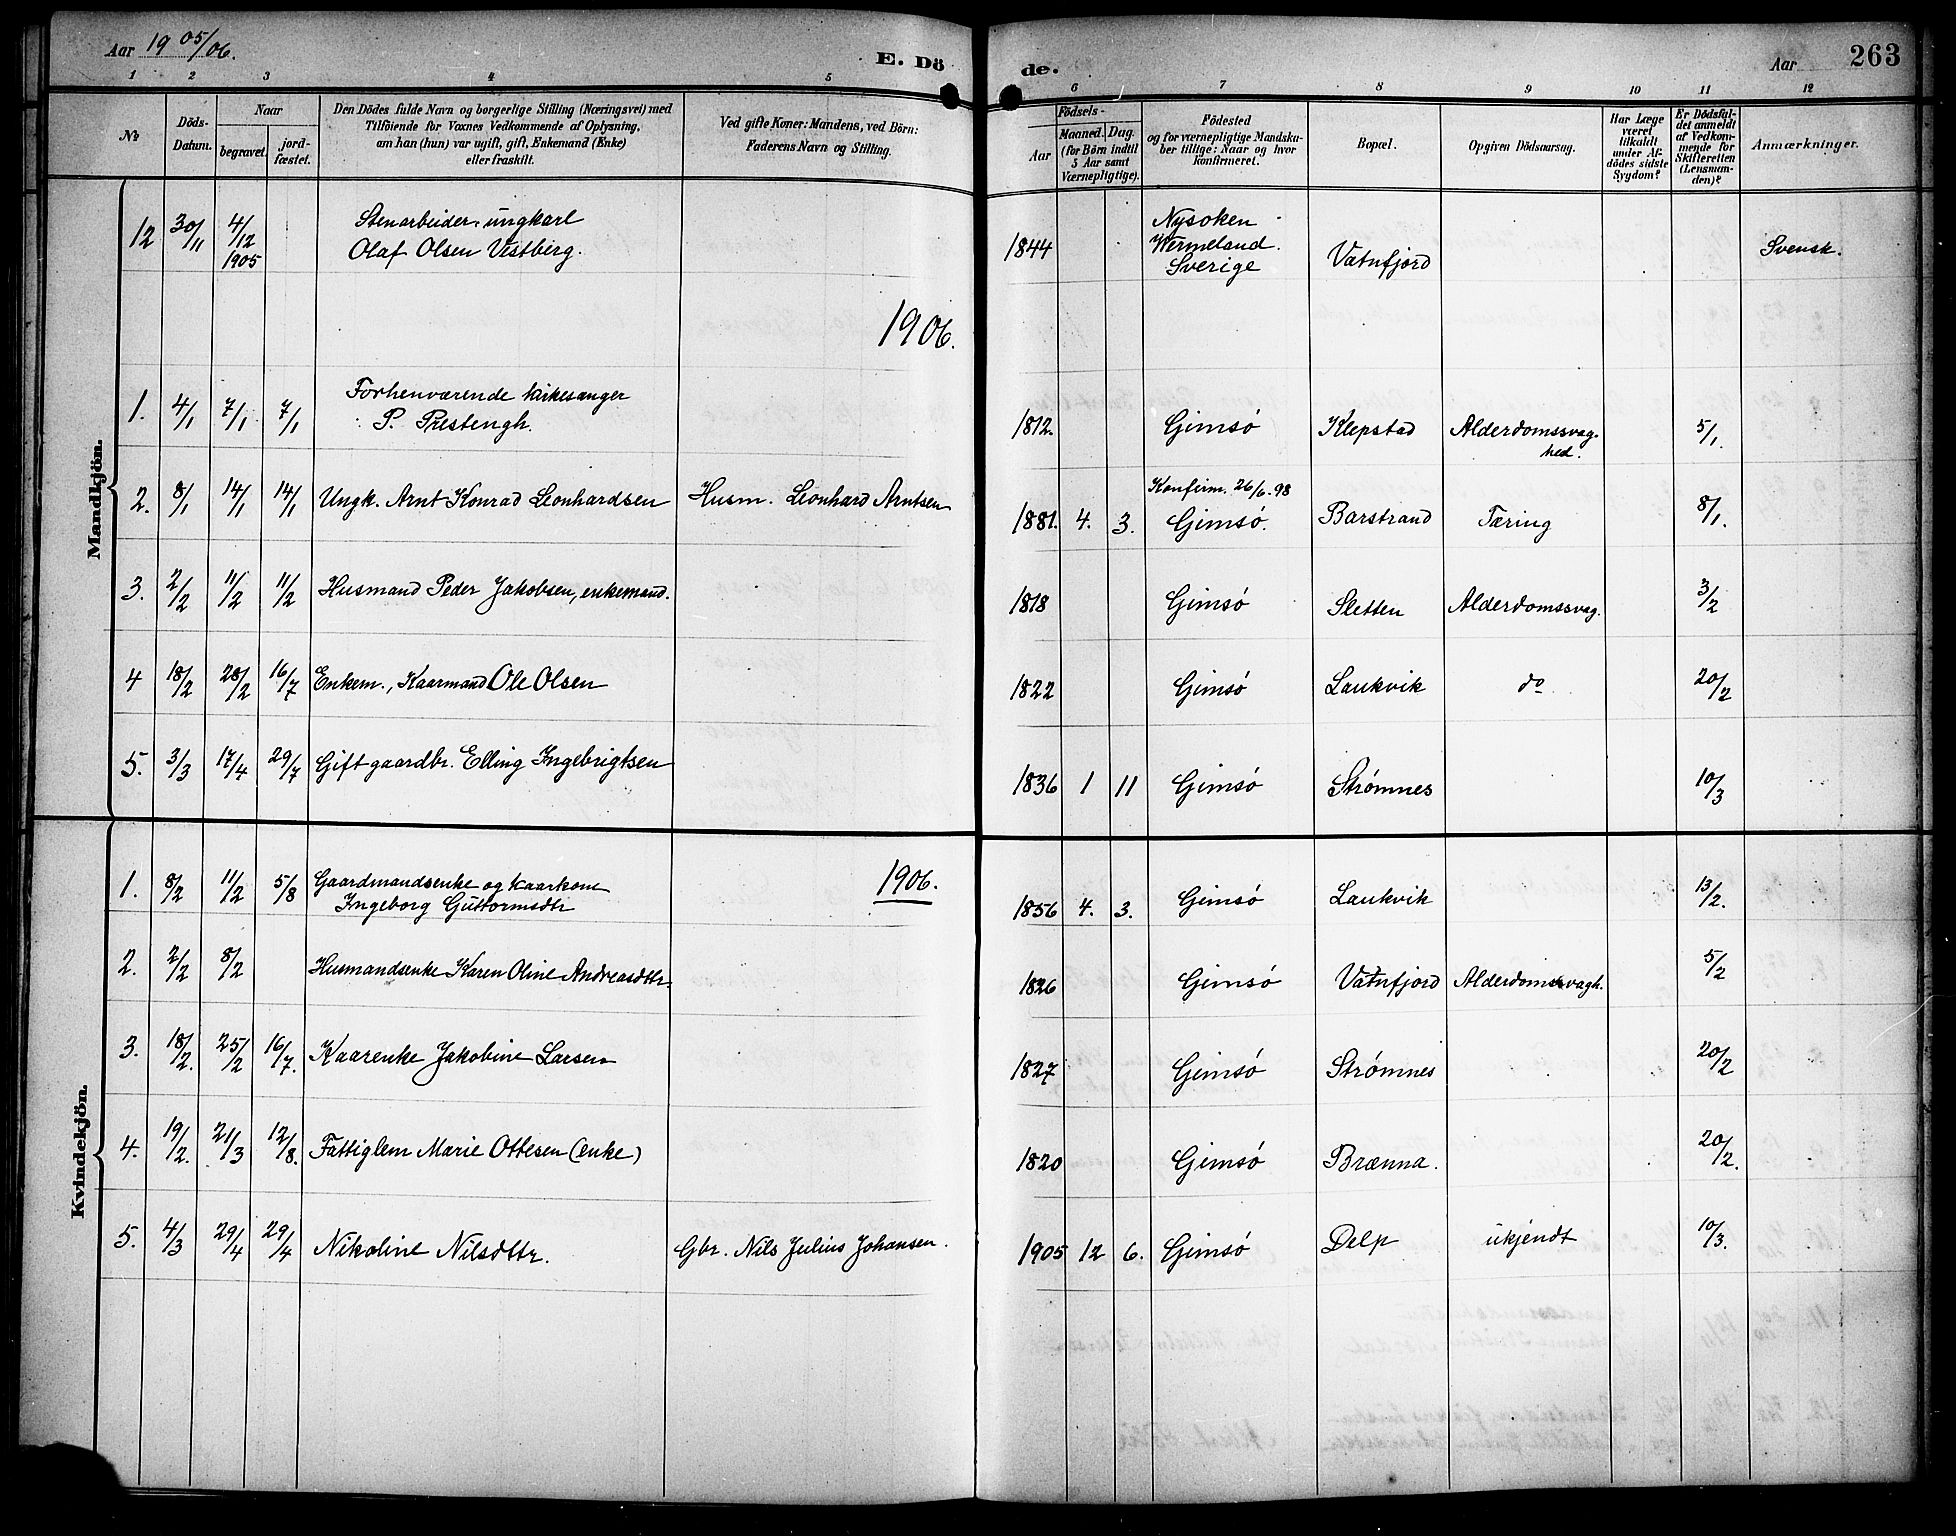 Aar 1905/06.
E. Dö
de.
Aar
263
1 2 3 4 5 6 7 8 9 10 11 12
No
Döds-
Datum.
Naar
begravet.
jord-
fæstet.
Den Dödes fulde Navn og borgerlige Stilling (Næringsvei) med
Tilföiende for Voxnes Vedkommende af Oplysning,
om han (hun) var ugift, gift, Enkemand (Enke)
eller fraskilt.
Ved gifte Koner: Mandens, ved Börn:
Faderens Navn og Stilling.
Födsels-
Aar
Maaned. Dag.
(for Börn indtil
5 Aar samt
Værnepligtige).
Födested
og for værnepligtige Mandsku-
ber tillige: Naar og hvor
konfirmeret.
Bopæl.
Opgiven Dödsaarsag.
Har Læge
været
tilkaldt
under Af-
dödes sidste
Sygdom?
Er Dödsfal-
det anmeldt
af Vedkom-
mende for
Skifteretten
(Lensman-
den)?
Anmærkninger.
Mandkjön.
12 30/11 4/12 1905 Stenarbeider, ungkarl
Olaf Olsen Vestberg. 1844 Nysoken
Wermeland.
Sverige Vatnfjord Svensk.
1906.
1. 4/1 7/1 7/1 Forhenværende kirkesanger
P. Prestengh. 1812. Gimsó Klepstad Alderdomssvag-
hed. 5/1.
2. 8/1 14/1 14/1 Ungk. Arnt Konrad Leonhardsen Husm. Leonhard Arntsen 1881. 4. 3. Konfirm. 26/6.98
Gimsó. Barstrand Tæring 8/1.
3. 2/2 11/2 11/2 Husmand Peder Jakobsen, enkemand. 1818 Gimsó Sletten Alderdomssvag. 3/2
4 18/2 28/2 16/7 Enkem., Kaarmand Ole Olsen 1822 Gimsó Laukvik do 20/2
5. 3/3 17/4 29/7 Gift gaardbr. Elling Ingebrigtsen 1836 1 11 Gimsó Strømnes 10/3
Kvindekjön.
1906.
1. 8/2 11/2 5/8 Gaardmandsenke og kaarkone
Ingeborg Guttormsdtr 1856 4. 3. Gimsó Laukvik 13/2.
2. 2/2 8/2 Husmandsenke Karen Oline Andreasdttr. 1826 Gimsó Vatnfjord Alderdomssvagh. 5/2
3. 18/2. 25/2 16/7. Kaarenke Jakobine Larsen 1827 Gimsó Strømnes 20/2
4. 19/2. 21/3 12/8. Fattiglem Marie Ottesen (enke) 1820 Gimsó Brænna. 20/2.
5. 4/3 29/4 29/4 Nikoline Nilsdttr. Gbr. Nils Julius Johansen. 1905 12 6. Gimsó Delp ukjendt 10/3.